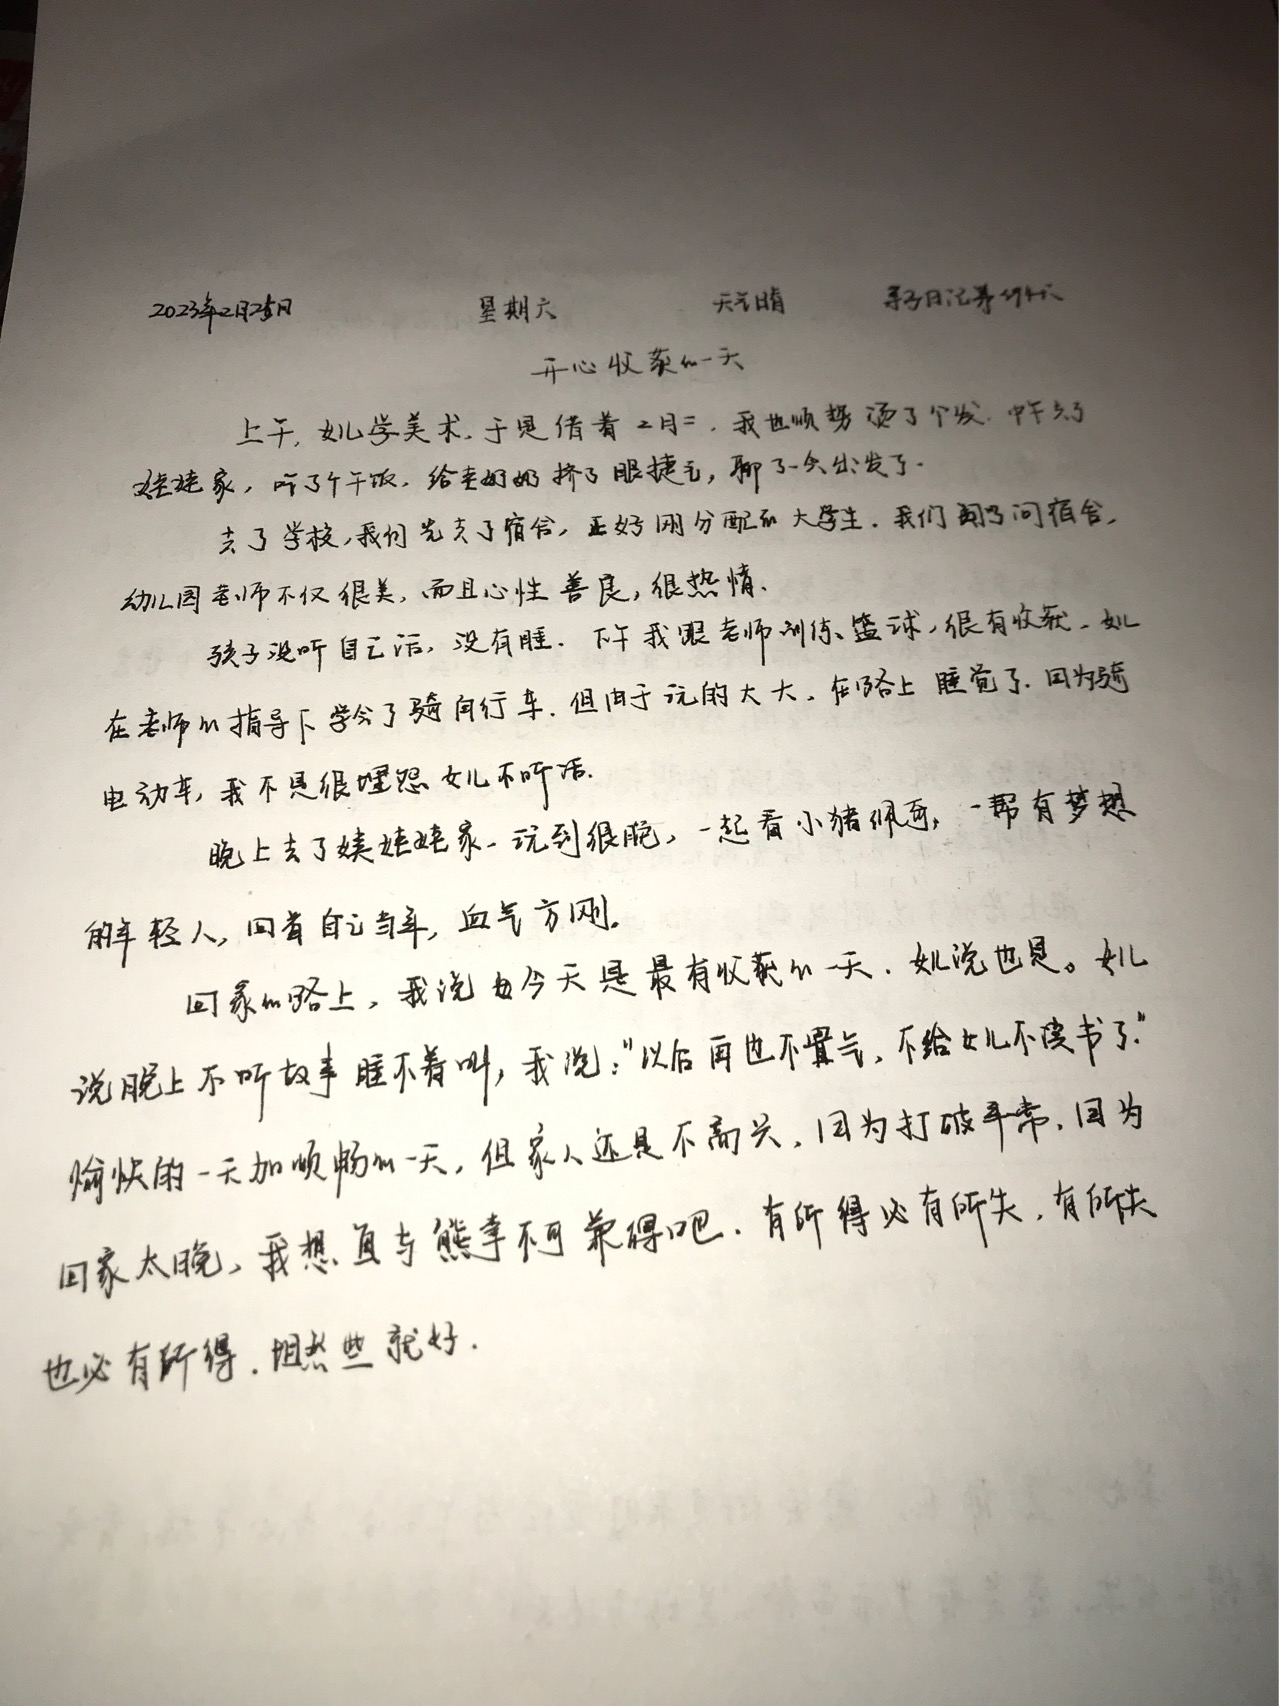 2023年2月25日 星期六 天气晴 亲子日记第
开心收获的一天
上午,女儿学美术,于是借着2月二,我也顺势烫了个发.中午去了
娃娃家,吃了午饭,给老奶奶挤了眼捷毛,聊了一会出发了.
去了学校,我们先去了宿舍,正好刚分配的大学生.我们问宿舍,
幼儿园老师不仅很美,而且心性善良,很热情.
孩子没听自己话,没有睡.下午我跟老师训练篮球,很有收获.女儿
在老师的指导下学会了骑自行车.但由于玩的太大,在路上睡觉了.因为骑
电动车,我不是很埋怨女儿不听话.
晚上去了娃娃家-玩到很晚,一起看小猪佩奇,一帮有梦想
的年轻人,回首自己当年,血气方刚。
回家的路上,我说今天是最有收获的一天.女儿说也是。女儿
说晚上不听故事睡不着叫,我说:"以后再也不置气,不给女儿不读书了."
愉快的一天加顺畅的一天,但家人还是不高兴,因为打破平常,因为
回家太晚,我想鱼与熊掌不可兼得吧.有所得必有所失,有所失
也必有所得.坦然些就好.